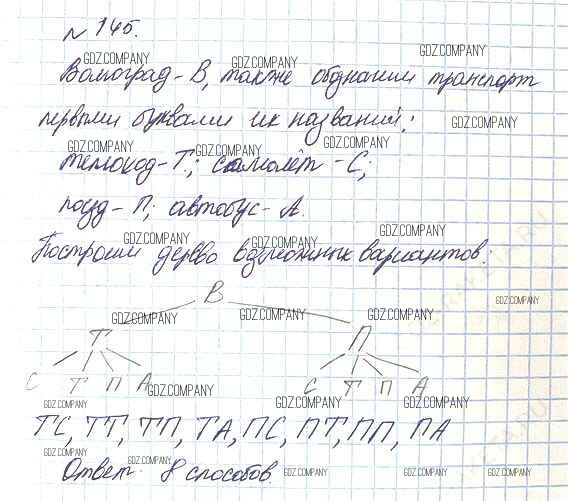 № 145.
Волгоград - В, также обозначим транспорт
первыми буквами их названий:
теплоход - Т; самолёт - С;
поезд - П; автобус - А.
Построим дерево возможных вариантов:
В
Т П
С Т П А С Т П А
ТС, ТТ, ТП, ТА, ПС, ПТ, ПП, ПА
Ответ: 8 способов.
GDZ.COMPANY